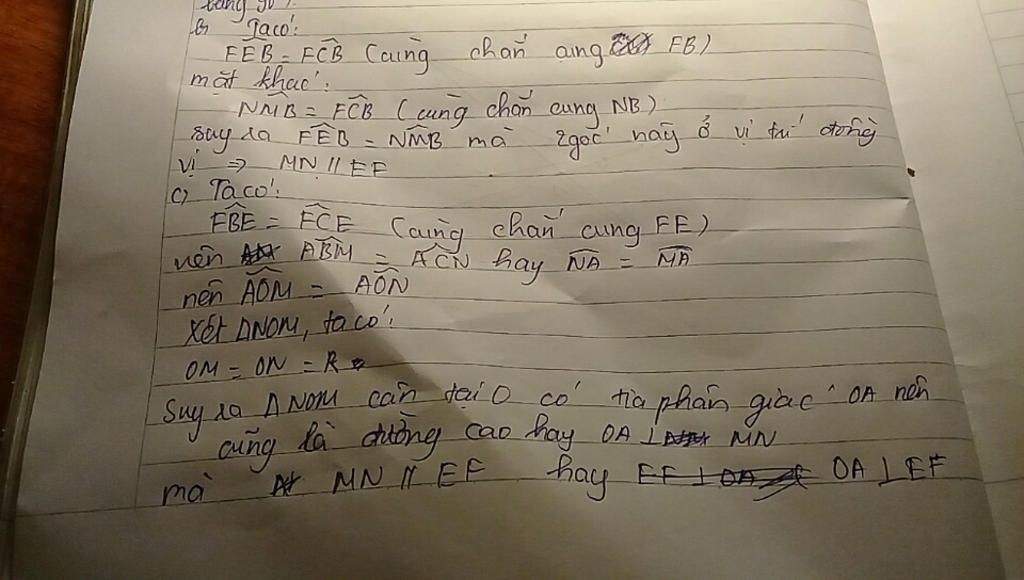 b, Ta có:
FEB = FCB (cùng chắn cung FB)
mặt khác:
NMB = FCB (cùng chắn cung NB)
suy ra FEB = NMB mà 2 góc này ở vị trí đồng
vị ⇒ MN // EF
c, Ta có:
FBE = FCE (cùng chắn cung FE)
nên ABM = ACN hay NA = MA
nên AOM = AON
Xét ΔNOM, ta có:
OM = ON = R
Suy ra ΔNOM cân tại O có tia phân giác OA nên
cũng là đường cao hay OA ⊥ MN
mà MN // EF hay OA ⊥ EF